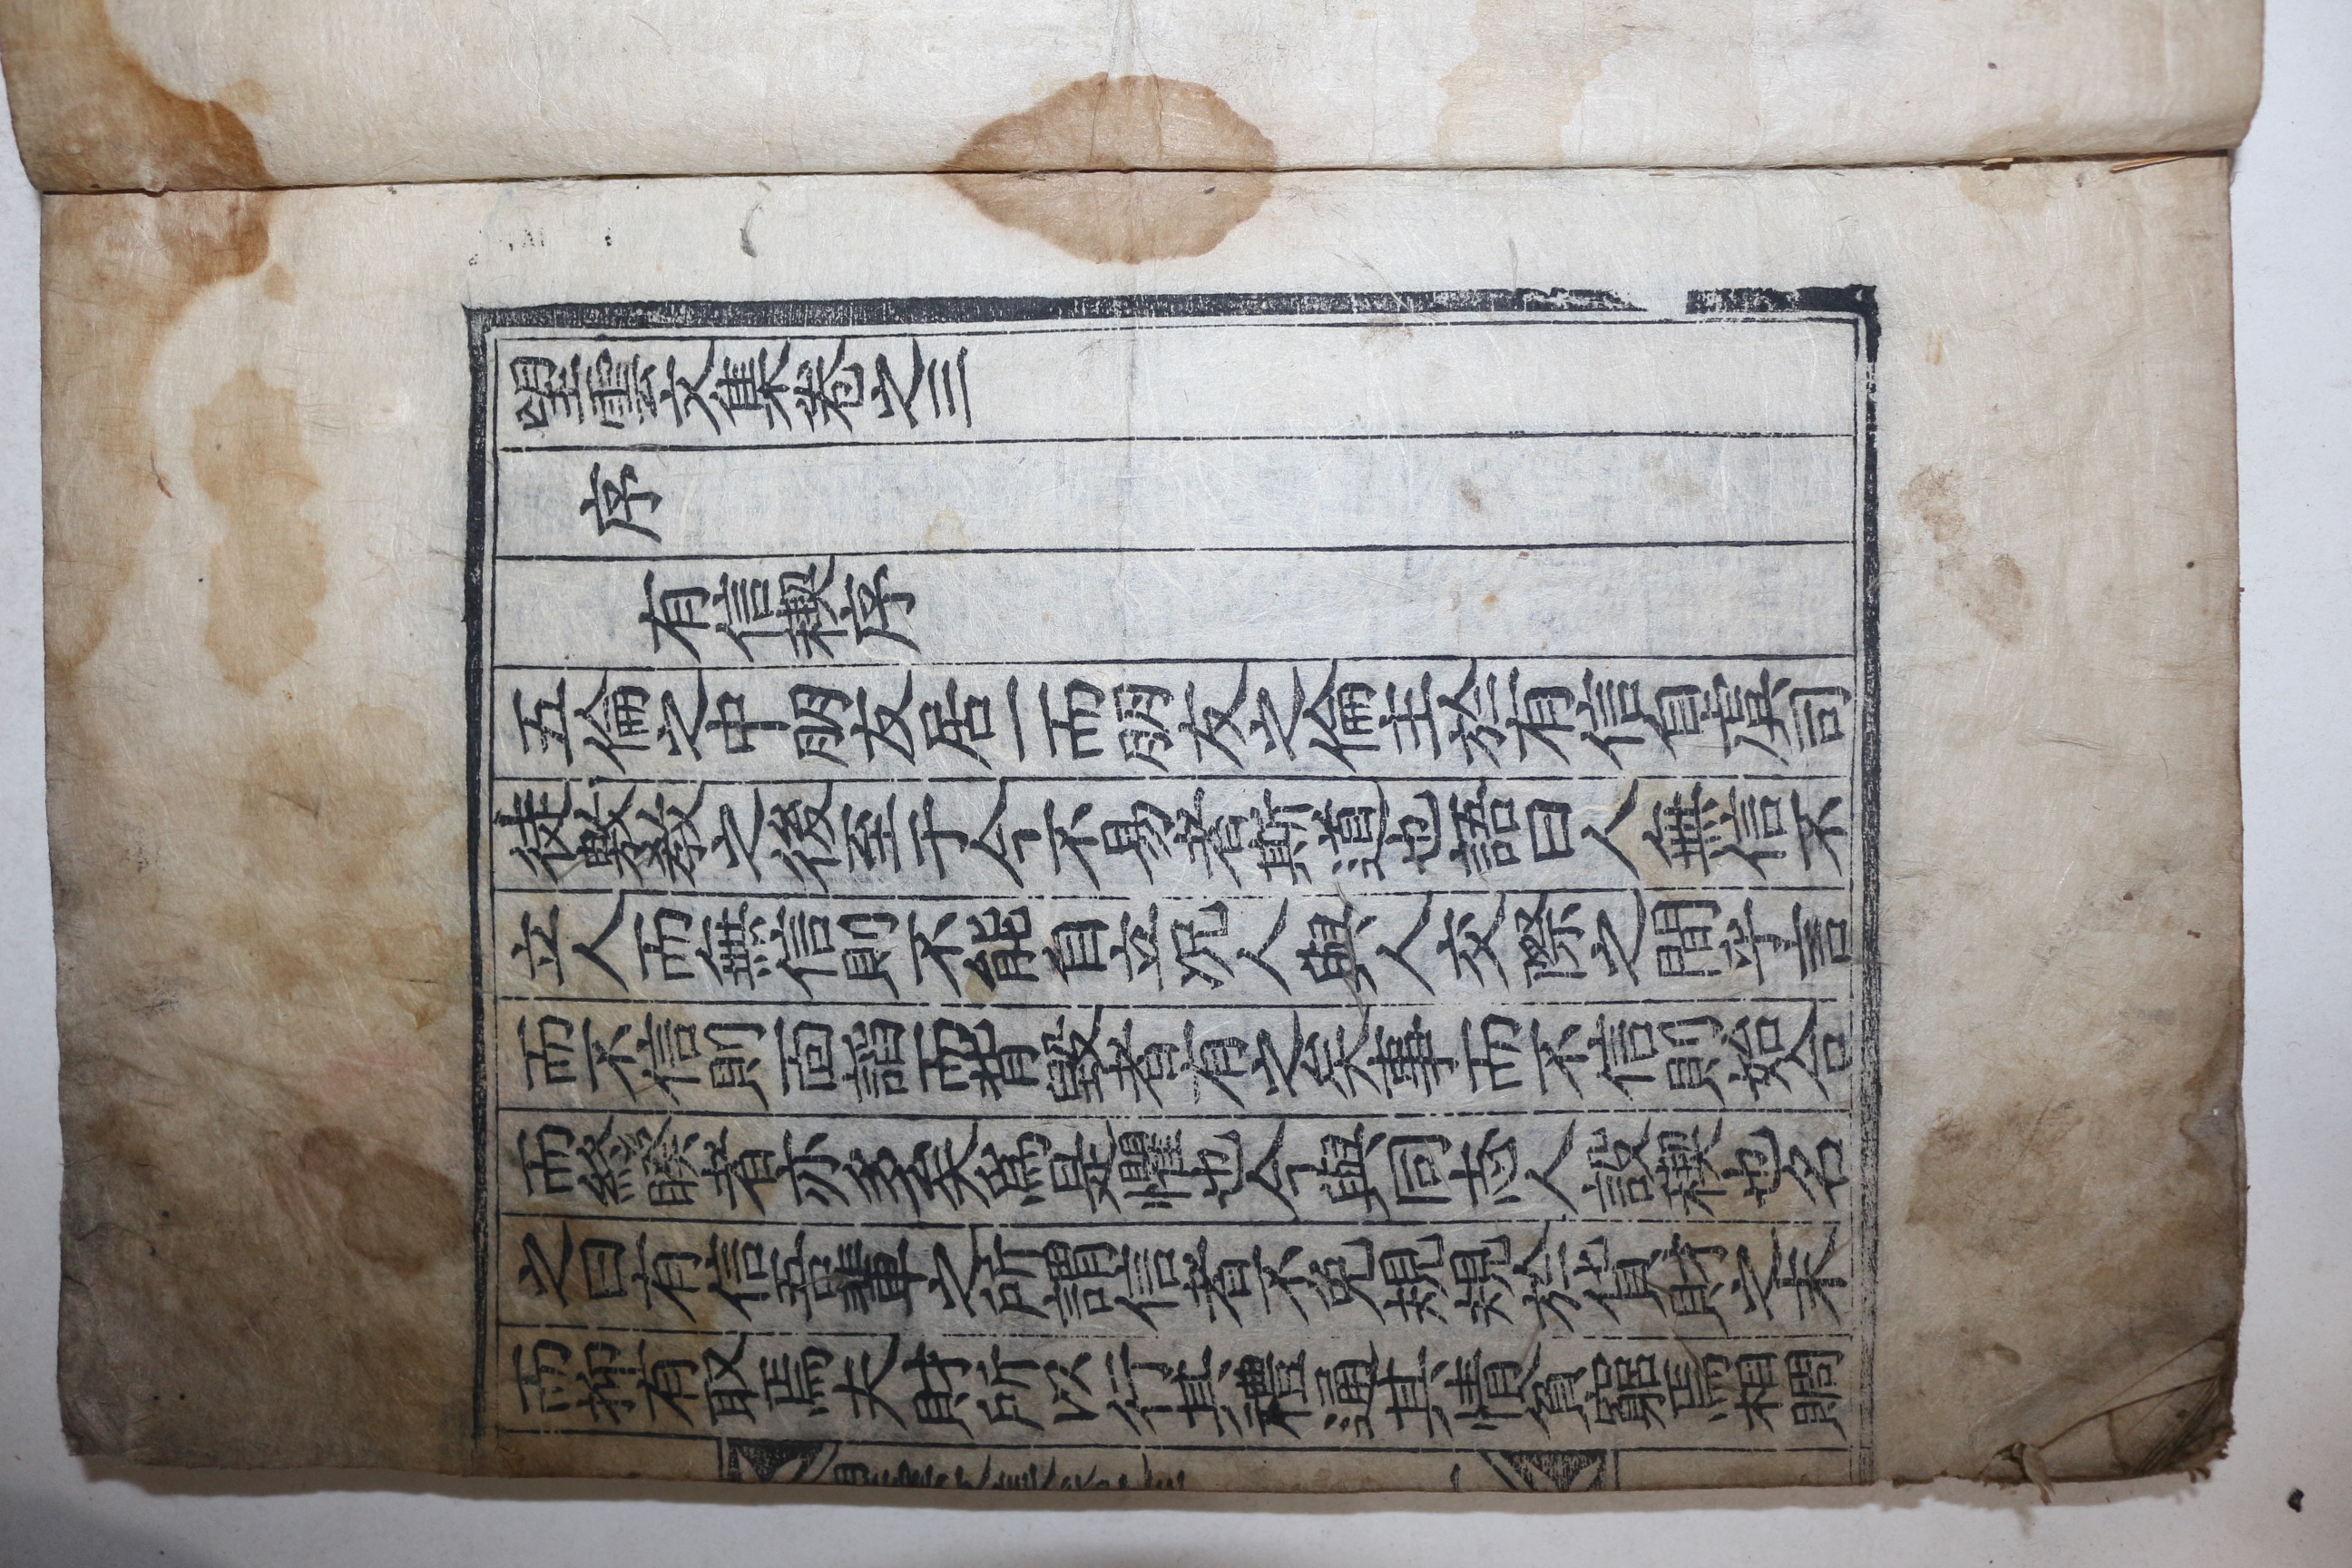 文集卷之三
序
有信契序
五倫之中朋友居一而朋友之倫主於有信自虞司
徒敷敎之後至于今不易者斯道也語曰人無信不
立人而無信則不能自立況人與人交際之間乎言
而不信則面諾而背毁者有之矣事而不信則始合
而終睽者亦多矣爲是懼也今與同志人設契也名
之曰有信吾輩之所謂信者不免規規於貨財之末
而抑有取焉夫財所以行其禮通其情貧窮焉相賙